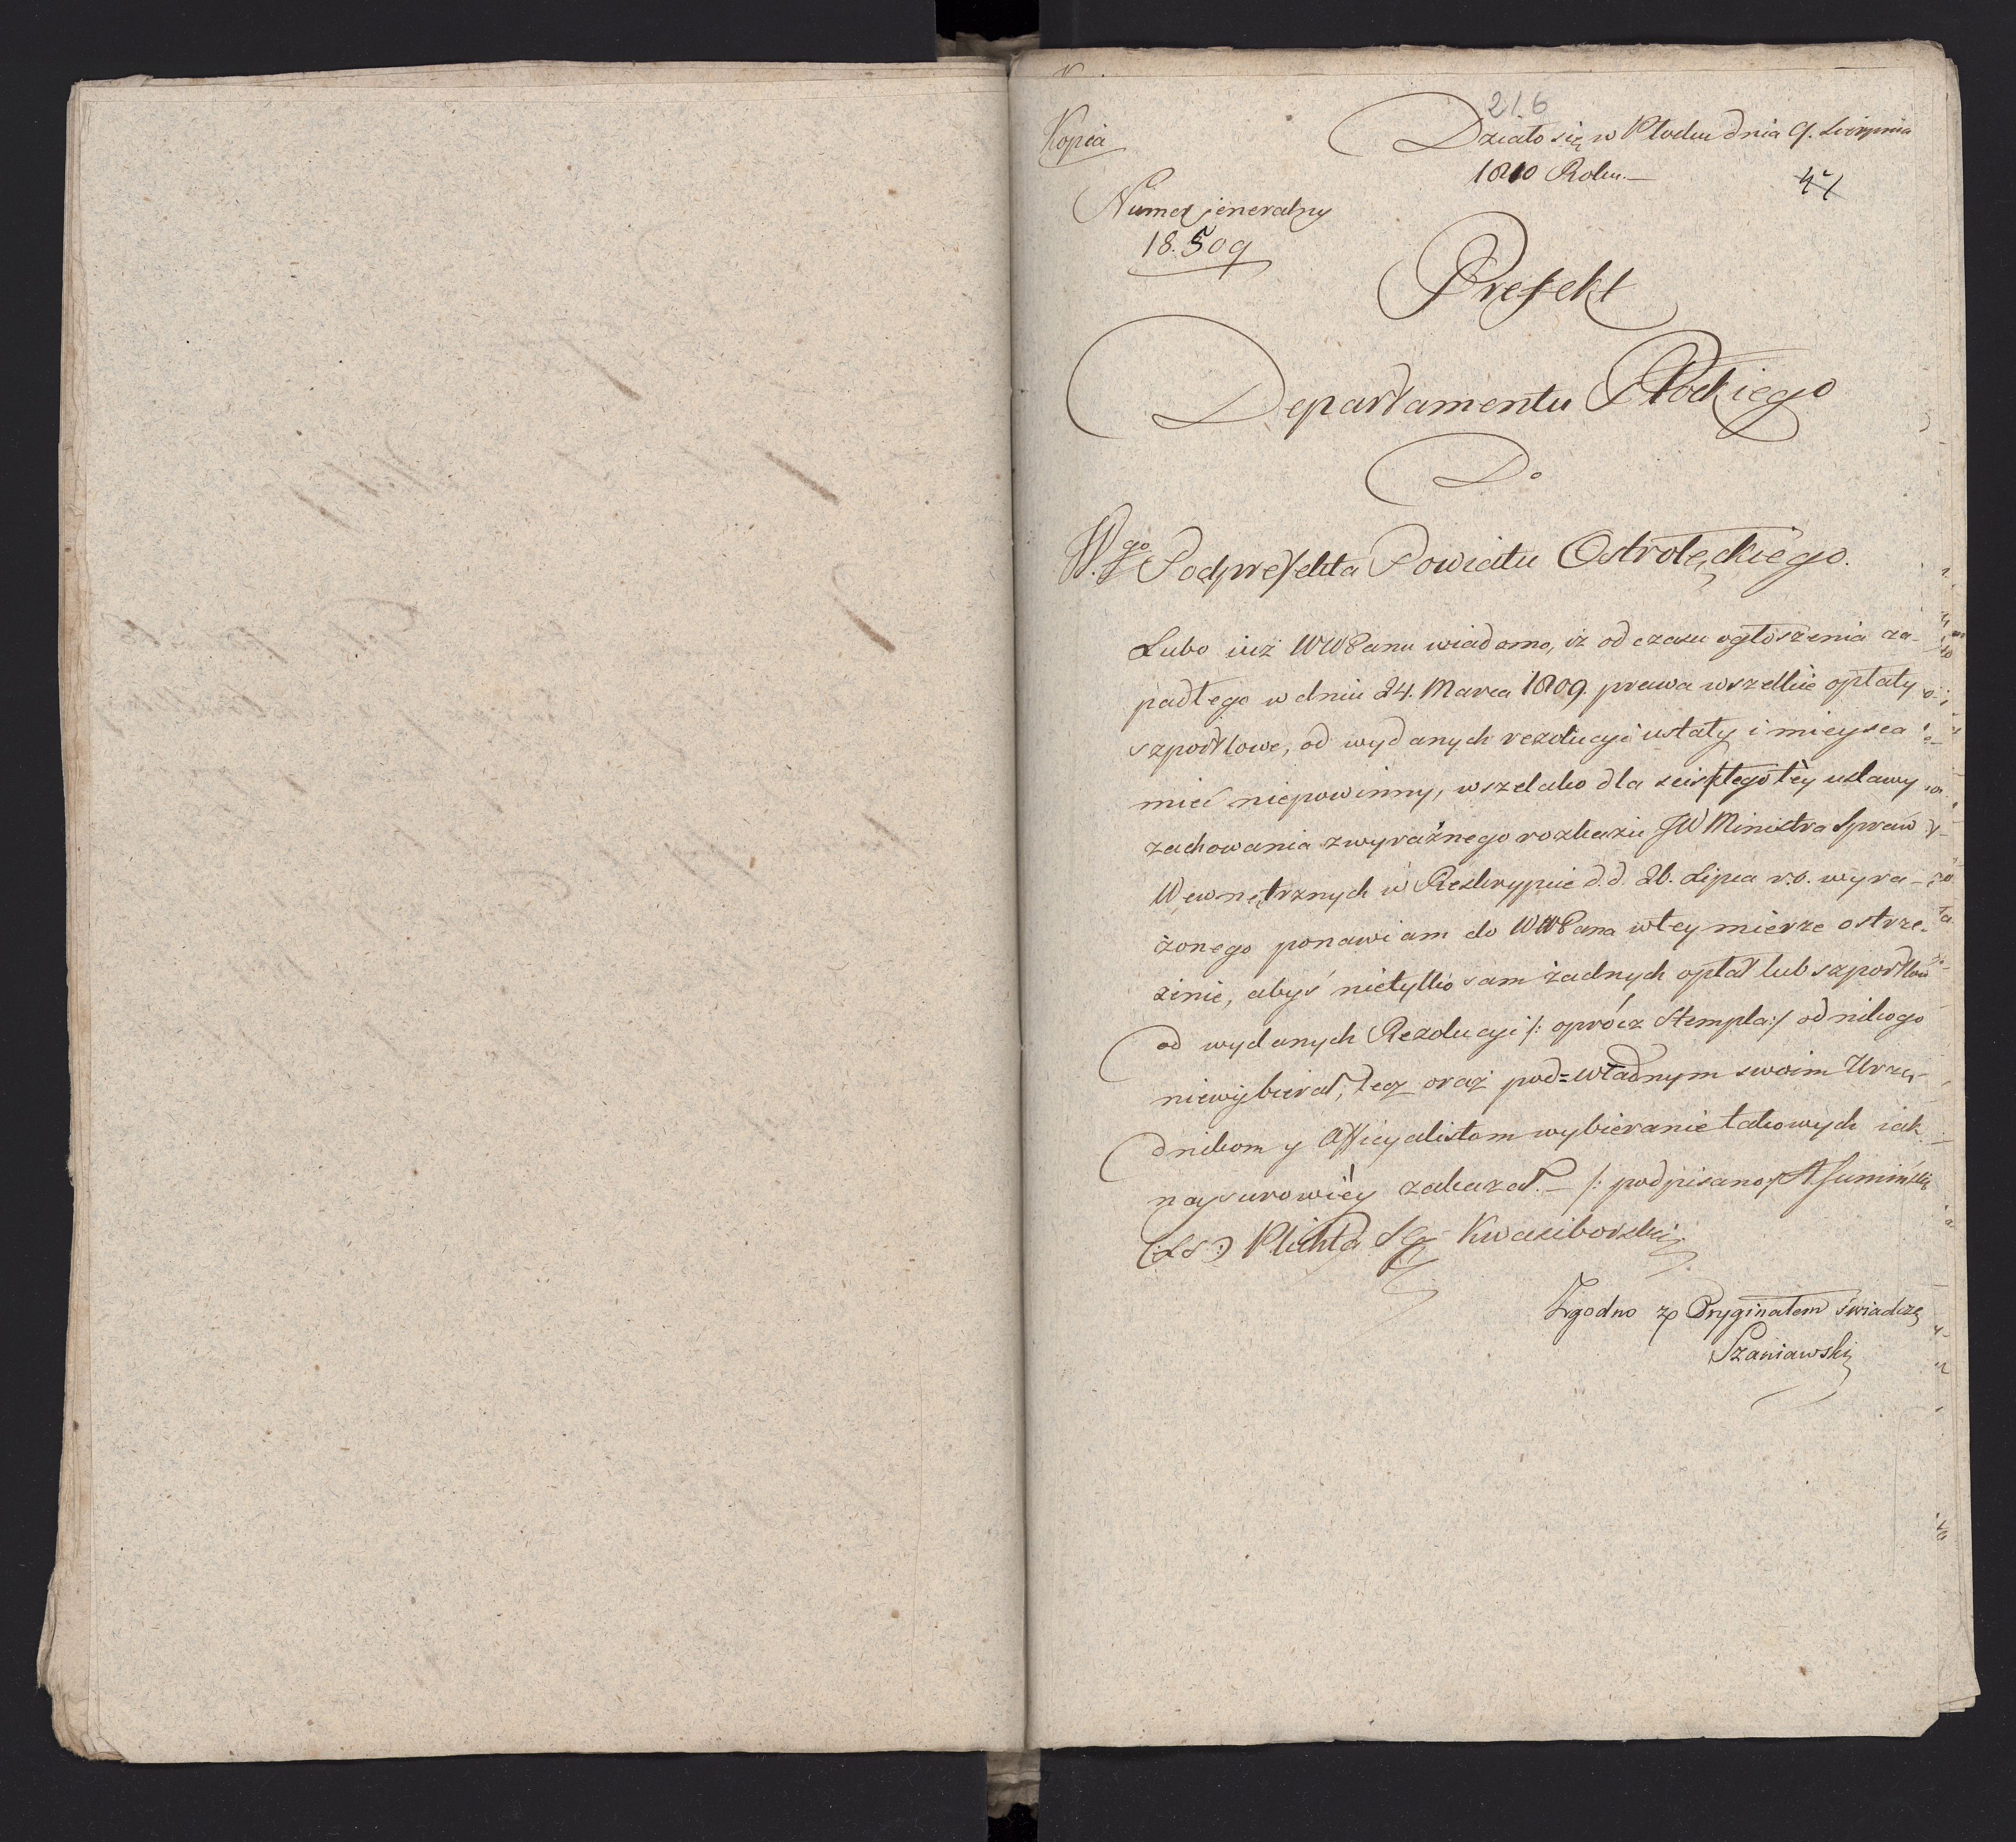 216
Kopia
Działo się w Płocku dnia 9. Sierpnia
1810 Roku.—
47
Numer jeneralny
18.509
Prefekt
Departamentu Płockiego
Do
W.go Podprefekta Powiatu Ostrołęckiego.
Lubo iuż WWPanu wiadomo, iż od czasu ogłoszenia za-
padłego w dniu 24. Marca 1809. prawa wszelkie opłaty
szportlowe, od wydanych rezolucyi ustały i mieysca
mieć niepowinny, wszelako dla scisłego téy ustawy
zachowania zwyraźnego rozkazu JW Ministra Spraw
Wewnętrznych w Reskrypcie d.d. 26. Lipca r.b. wyra-
żonego ponawiam do WWPana wtey mierze ostrze-
żenie, abyś nietylko sam żadnych opłat lub szportlow
od wydanych Rezolucyi /: oprócz Stempla :/ od nikogo
niewybierał, lecz oraz pod=władnym swoim Urzę-
dnikom y Officyalistom wybieranie takowych iak
naysurowiéy zakazał.— /: podpisano :/ A Sumiński
(:LS:) Plichta Sg Kwasiborski
Zgodno z Oryginałem świadczę
Szaniawski